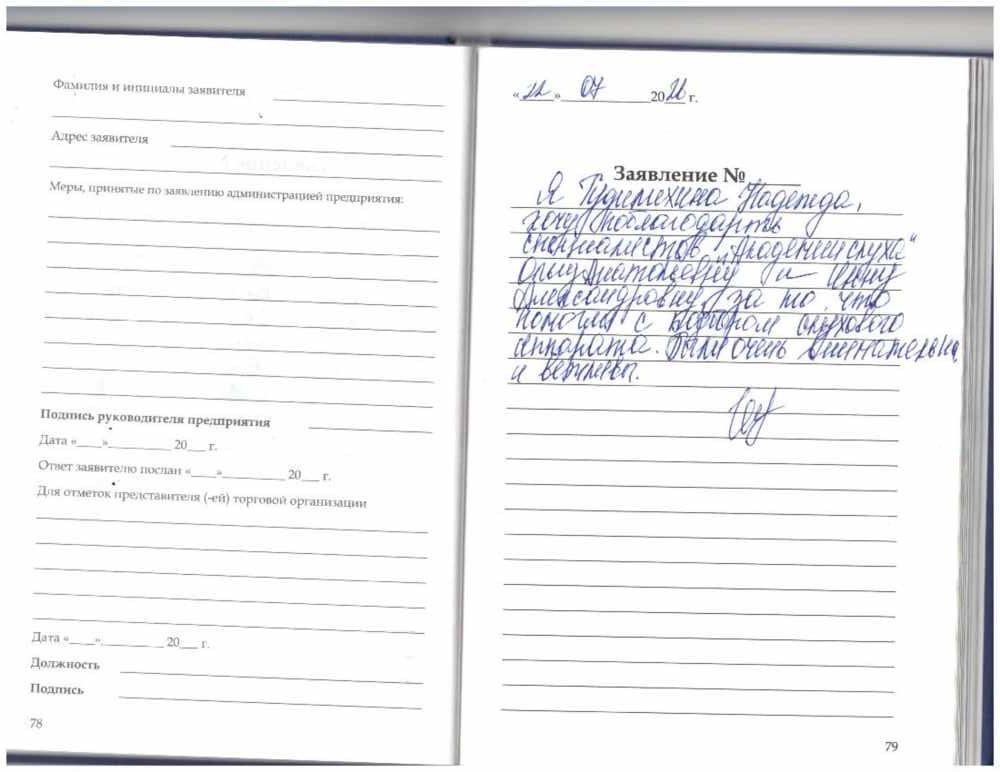 Фамилия и инициалы заявителя
Адрес заявителя
Меры, принятые по заявлению администрацией предприятия:
Подпись руководителя предприятия
Дата «___»__________ 20___ г.
Ответ заявителю послан «___»__________ 20___ г.
Для отметок представителя (-ей) торговой организации
Дата «___»__________ 20___ г.
Должность
Подпись
78
«22» 07 20 г.
Заявление №
Я Надежда,
хочу поблагодарить
специалистов "Академии слуха"
Ольгу Анатольевну и
Александровну, за то, что
помогли с подбором слухового
аппарата. Были очень внимательны
и вежливы.
79